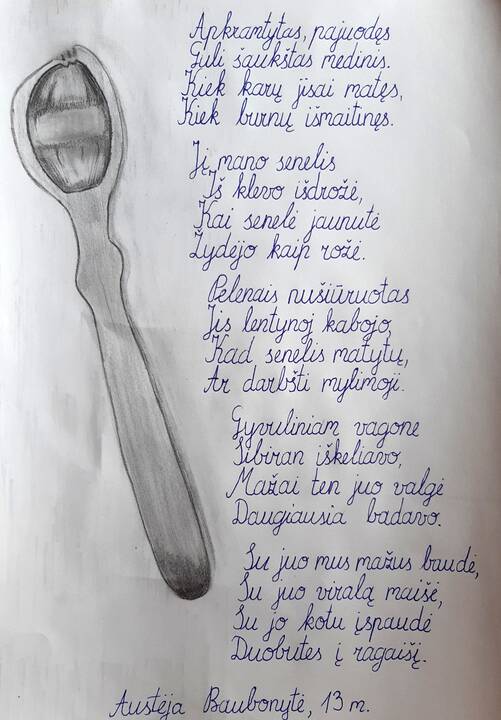 Apkramtytas, pajuodęs
Guli šaukštas medinis.
Kiek karų jisai matęs,
Kiek burnų išmaitinęs.
Jį mano senelis
Iš klevo išdrožė,
Kai senelė jaunutė
Žydėjo kaip rožė.
Pelenais nušiūruotas
Jis lentynoj kabojo,
Kad senelis matytų,
Ar darbšti mylimoji.
Gyvuliniam vagone
Sibiran iškeliavo,
Mažai ten juo valgė
Daugiausia badavo.
Su juo mus mažus baudė,
Su juo viralą maišė,
Su jo kotu įspaudė
Duobutes į ragaišį.
Austėja Baubonytė, 13 m.